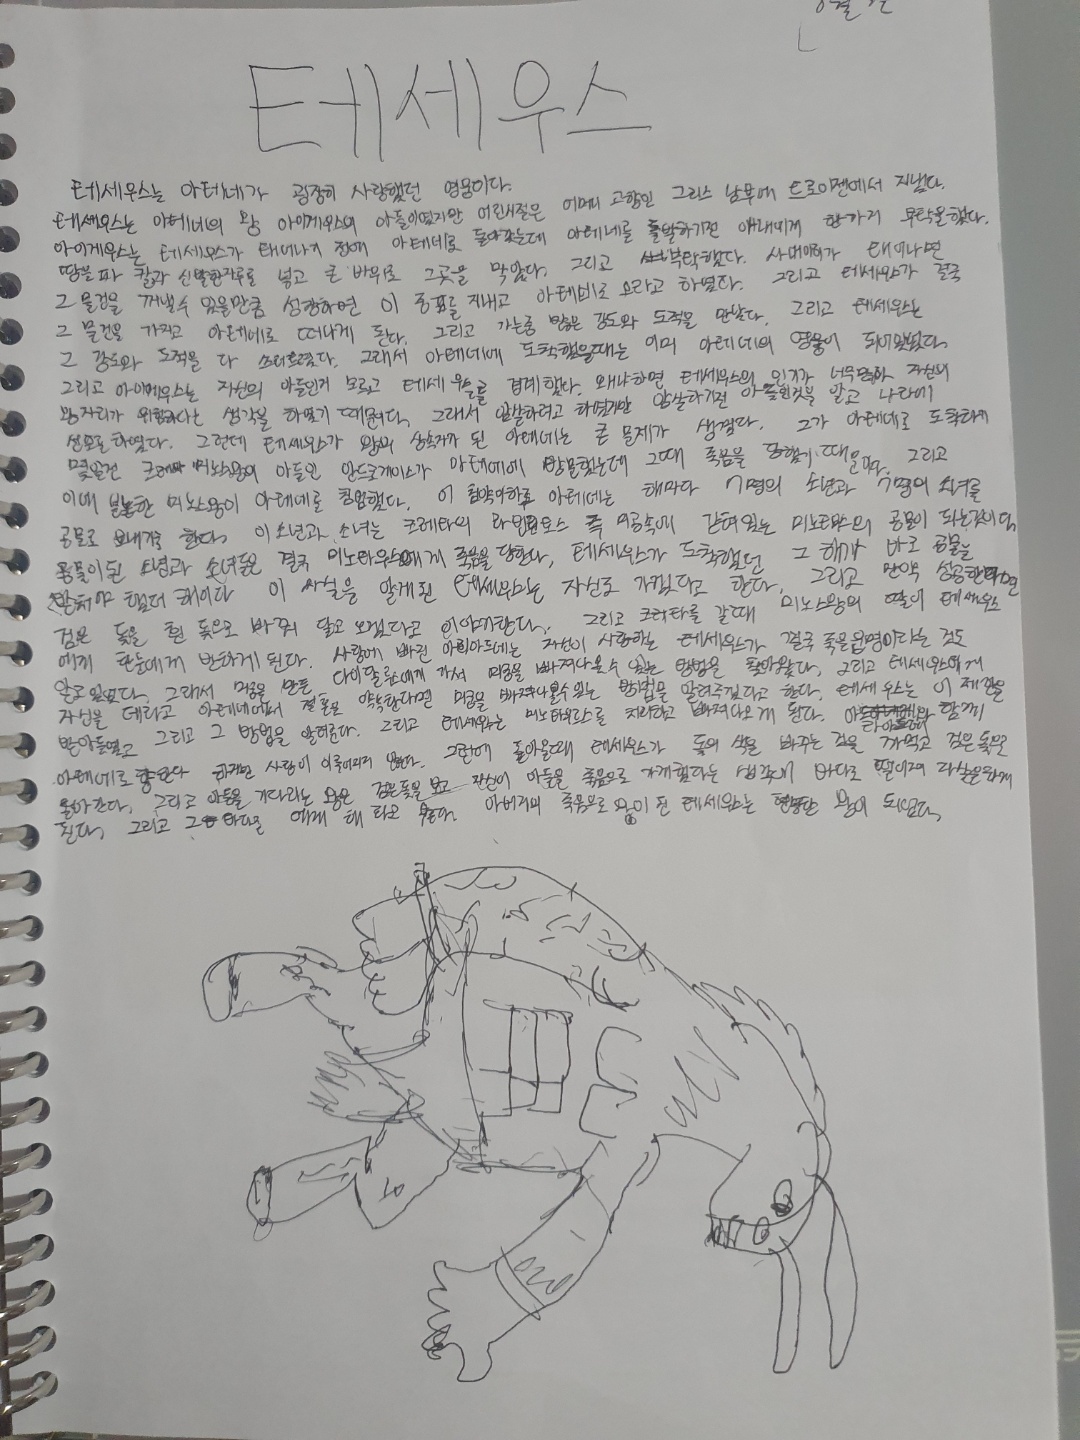 테세우스
테세우스는 아테네가 굉장히 사랑했던 영웅이다.
테세우스는 아테네의 왕 아이게우스의 아들이였지만 어린시절은 어머니 고향인 그리스 남부에 트로이젠에서 지냈다.
아이게우스는 테세우스가 태어나기 전에 아테네로 돌아갔는데 아테네를 출발하기전 아내에게 한가지 부탁을했다.
땅을 파 칼과 신발한짝을 넣고 큰 바위로 그곳을 막았다. 그리고 부탁했다. 사내아이가 태어나면
그 물건을 꺼낼수 있을만큼 성장하면 이 증표를 지내고 아테네로 오라고 하였다. 그리고 테세우스가 결국
그 물건을 가지고 아테네로 떠나게 된다. 그리고 가는중 많은 강도와 도적을 만났다. 그리고 테세우스는
그 강도와 도적을 다 쓰러트렸다. 그래서 아테네에 도착했을때는 이미 아테네의 영웅이 되어있었다.
그리고 아이게우스는 자신의 아들인지 모르고 테세우스를 경계했다. 왜냐하면 테세우스의 인기가 너무 자신의
왕자리가 위험하다는 생각을 하였기 때문이다. 그래서 암살하려고 하였지만 암살하기전 아들인것을 알고 나라에
선포를하였다. 그런데 테세우스가 왕의 상속자가 된 아테네는 큰 문제가 생겼다. 그가 아테네로 도착하기
몇년전 크레타 미노스왕의 아들인 안드로게이스가 아테네에 방문했는데 그때 죽음을 당했기 때문이다. 그리고
이에 분노한 미노스왕이 아테네로 침입했다. 이 침략이후로 아테네는 해마다 7명의 소년과 7명의 소녀를
공물로 보내기로 한다. 이소년과 소녀는 크레타의 라비린토스 즉 미궁속에 갇혀있는 미노타우스의 공물이 되는것이다.
공물이된 소년과 소녀들은 결국 미노타우스에게 죽음을 당한다. 테세우스가 도착했던 그 해가 바로 공물을
받쳐야 했던 해이다 이 사실을 알게된 테세우스는 자신도 가겠다고 한다. 그리고 만약 성공한다면
검은 돛을 흰 돛으로 바꿔 달고 오겠다고 이야기한다. 그리고 크레타를 갈때 미노스왕의 딸이 테세우스
에게 한눈에게 반하게 된다. 사랑에 빠진 아리아드네는 자신이 사랑하는 테세우스가 결국 죽을운명이라는 것도
알고있었다. 그래서 미궁을 만든 다이달로스에게 가서 미궁을 빠져나올수 있는 방법을 찾아왔다. 그리고 테세우스에게
자신을 데리고 아테네에서 결혼을 약속한다면 미궁을 빠져나올수있는 방법을 알려주겠다고 한다. 테세우스는 이 제안을
받아들였고 그리고 그 방법을 알려준다. 그리고 테세우스는 미노타우르스를 처리하고 빠져나오게 된다. 함께
아테네로 향한다 하지만 사랑이 이루어지지 않았다. 그런데 돌아올때 테세우스가 돛의 색을 바꾸는 것을 까먹고 검은돛으로
돌아간다. 그리고 아들을 기다리는 왕은 검은돛을 보고 자신이 아들을 죽음으로 가게했다는 생각에 바다로 떨어져 자살을하게
된다. 그리고 그 바다를 에게 해 라고 부른다. 아버지의 죽음으로 왕이 된 테세우스는 현명한 왕이 되었다.